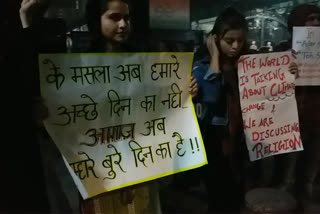 के मसला अब हमारे
अच्छे दिन का नहीं,
आवाज़ अब
घोर बुरे दिन का है !!
THE WORLD
IS TALKING
ABOUT CLIMATE
CHANGE !
WE ARE
DISCUSSING
RELIGION